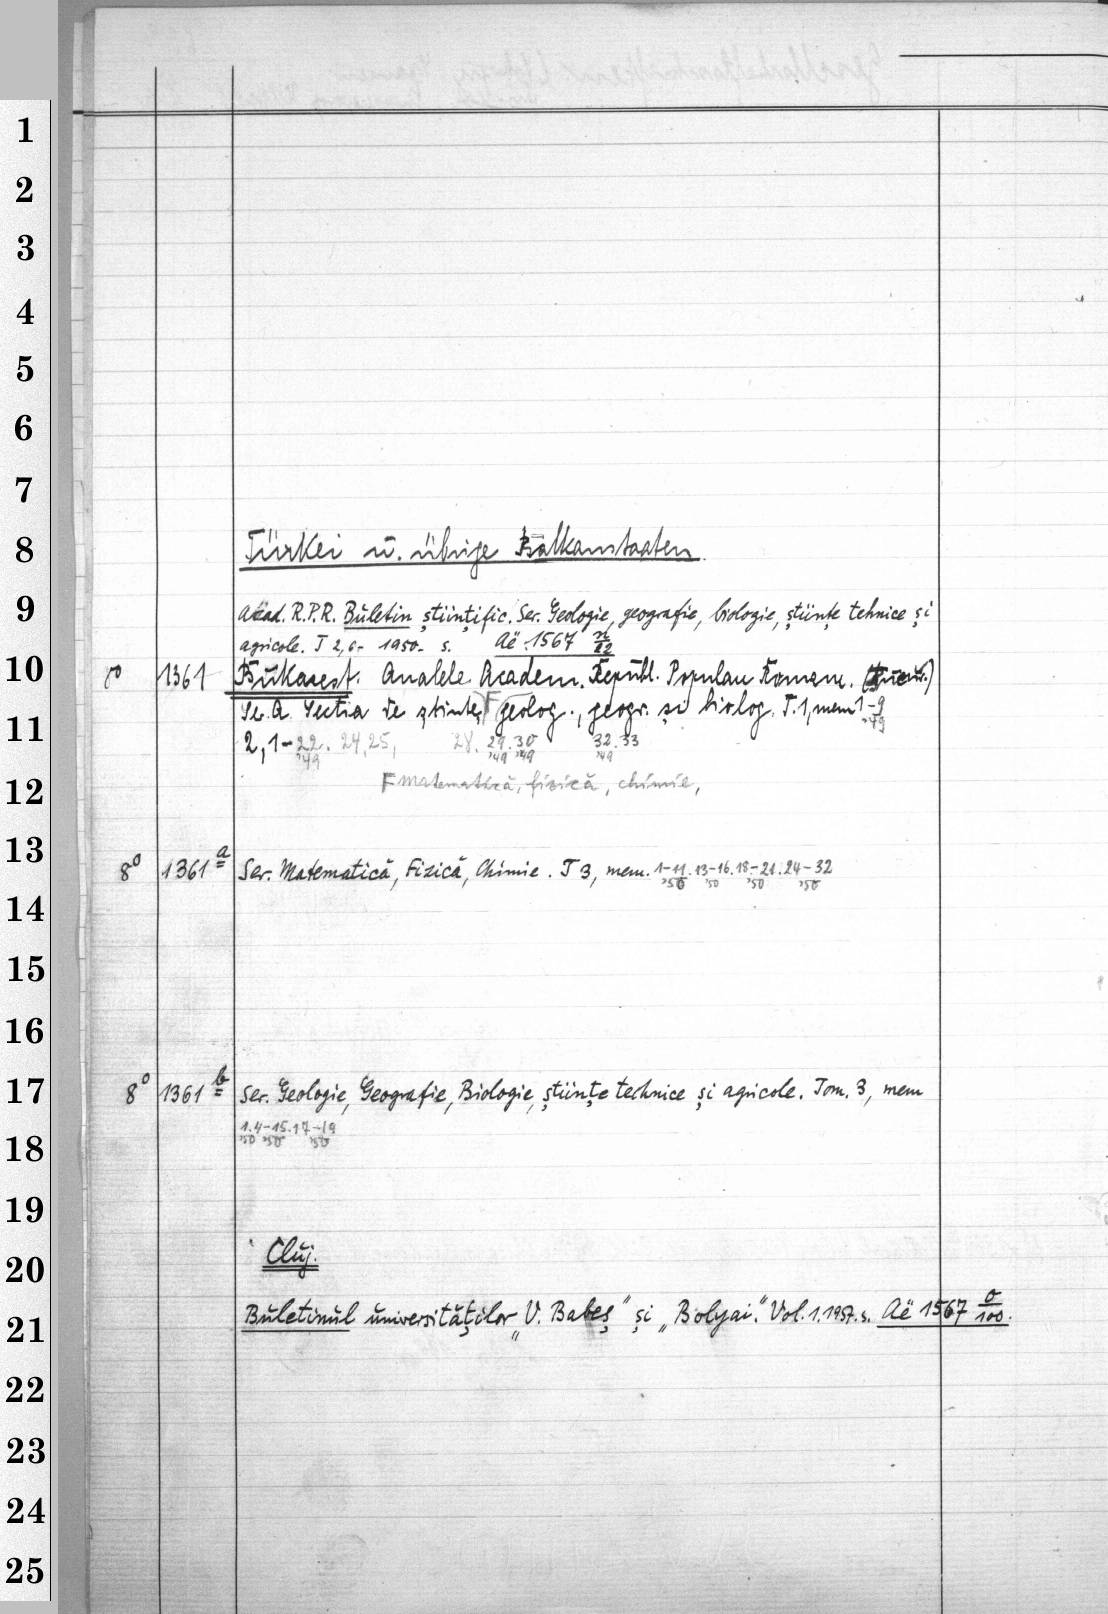 1
2
3
4
5
6
7
8
Türkei u. übrige Balkanstaaten.
9
Acad. R.P.R. Buletin știinţific. Ser. Geologie, geografie, biologie, știinţe tehnice și
agricole. T 2,6- 1950- s. Aë 1567 n/22
10
8° 1361 Bukarest. Analele Academ. Republ. Populau Romane.
Se. A. Sectia de știinte, geolog., geogr. și biolog. T. 1, mem 1-9
'49
11
2, 1-22. 24, 25, 28. 29. 30 32. 33
'49 '49 '49 '49
12
F matematică, fizică, chimie,
13
8° 1361 a Ser. Matematică, Fizică, Chimie. T 3, mem. 1-11. 13-16. 18-21. 24-32
'50 '50 '50 '50
14
15
16
17
8° 1361 b Ser. Geologie, Geografie, Biologie, știinţe technice și agricole. Tom. 3, mem
1. 4-15. 17-19
'50 '50 '50
18
19
20
Cluj.
21
Buletinul universităţilor „V. Babeș" și „Bolyai." Vol. 1. 1957. s. Aë 1567 o/100.
22
23
24
25